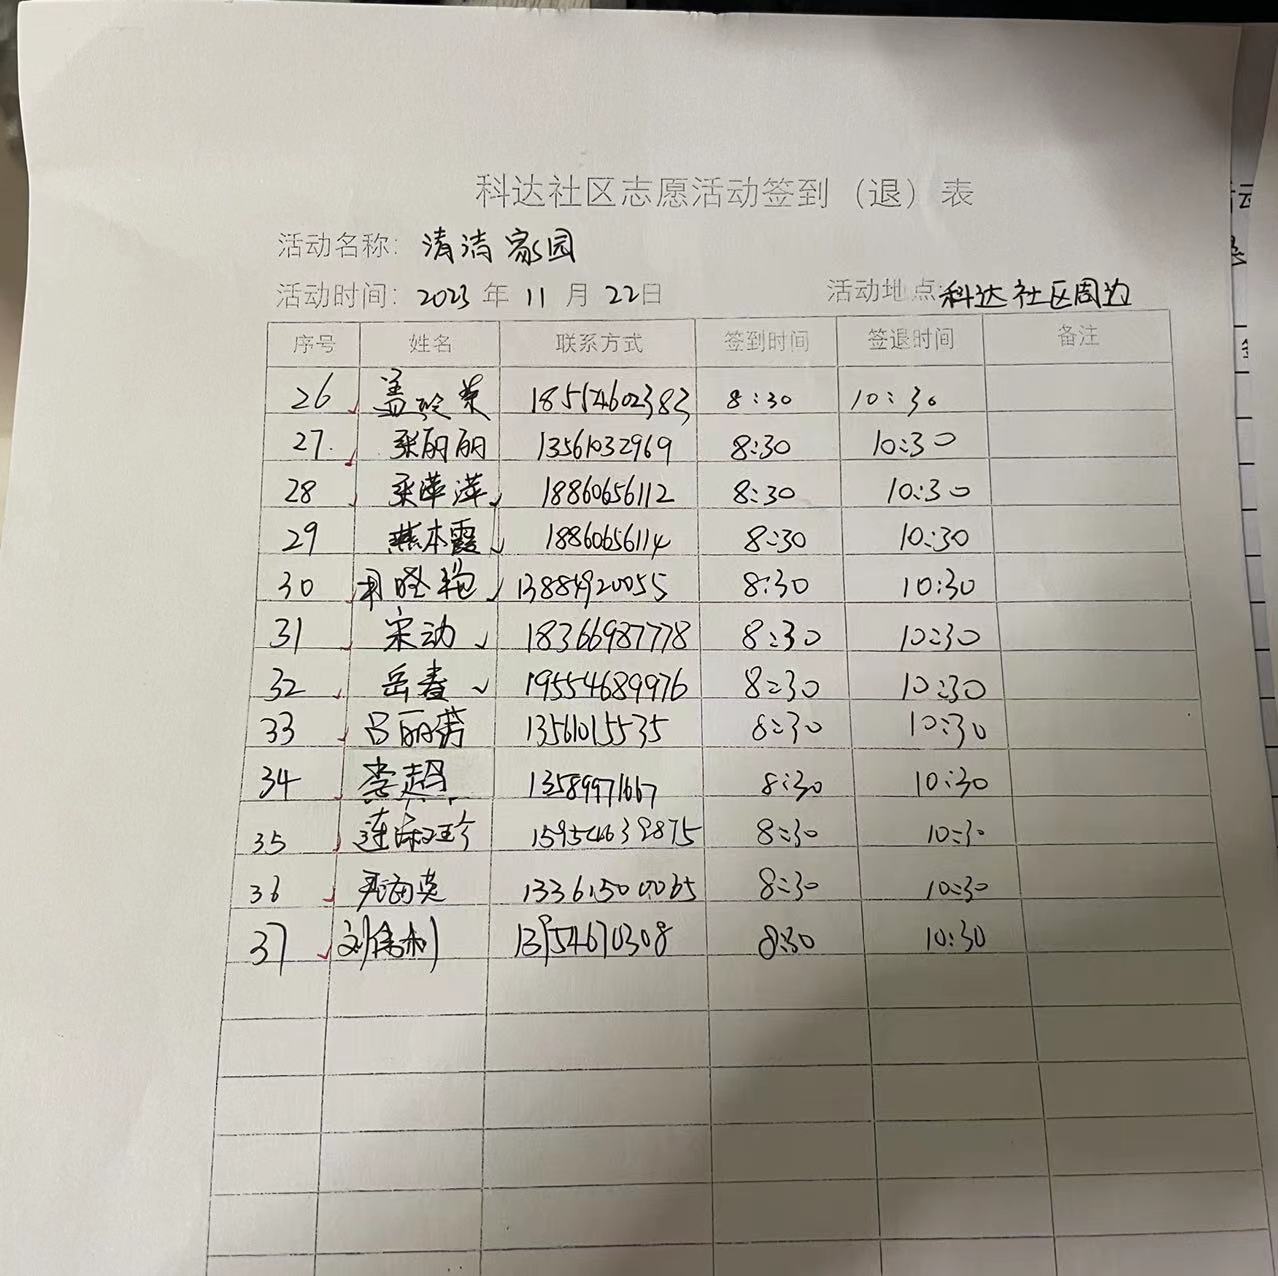 科达社区志愿活动签到（退）表
活动名称：清洁家园
活动时间：2023年11月22日 活动地点：科达社区周边
序号 姓名 联系方式 签到时间 签退时间 备注
26 盖玲英 18554602383 8:30 10:30
27. 张丽丽 13561032969 8:30 10:30
28 张萍萍 18860656112 8:30 10:30
29 燕本霞 18860656114 8:30 10:30
30 周晓艳 13884920055 8:30 10:30
31 宋动 18366987778 8:30 10:30
32 岳春 19554689976 8:30 10:30
33 吕丽芳 13561015535 8:30 10:30
34 李超 13589971667 8:30 10:30
35 连 珍 15954639875 8:30 10:30
36 海英 13361500065 8:30 10:30
37 刘 利 13954670308 8:30 10:30